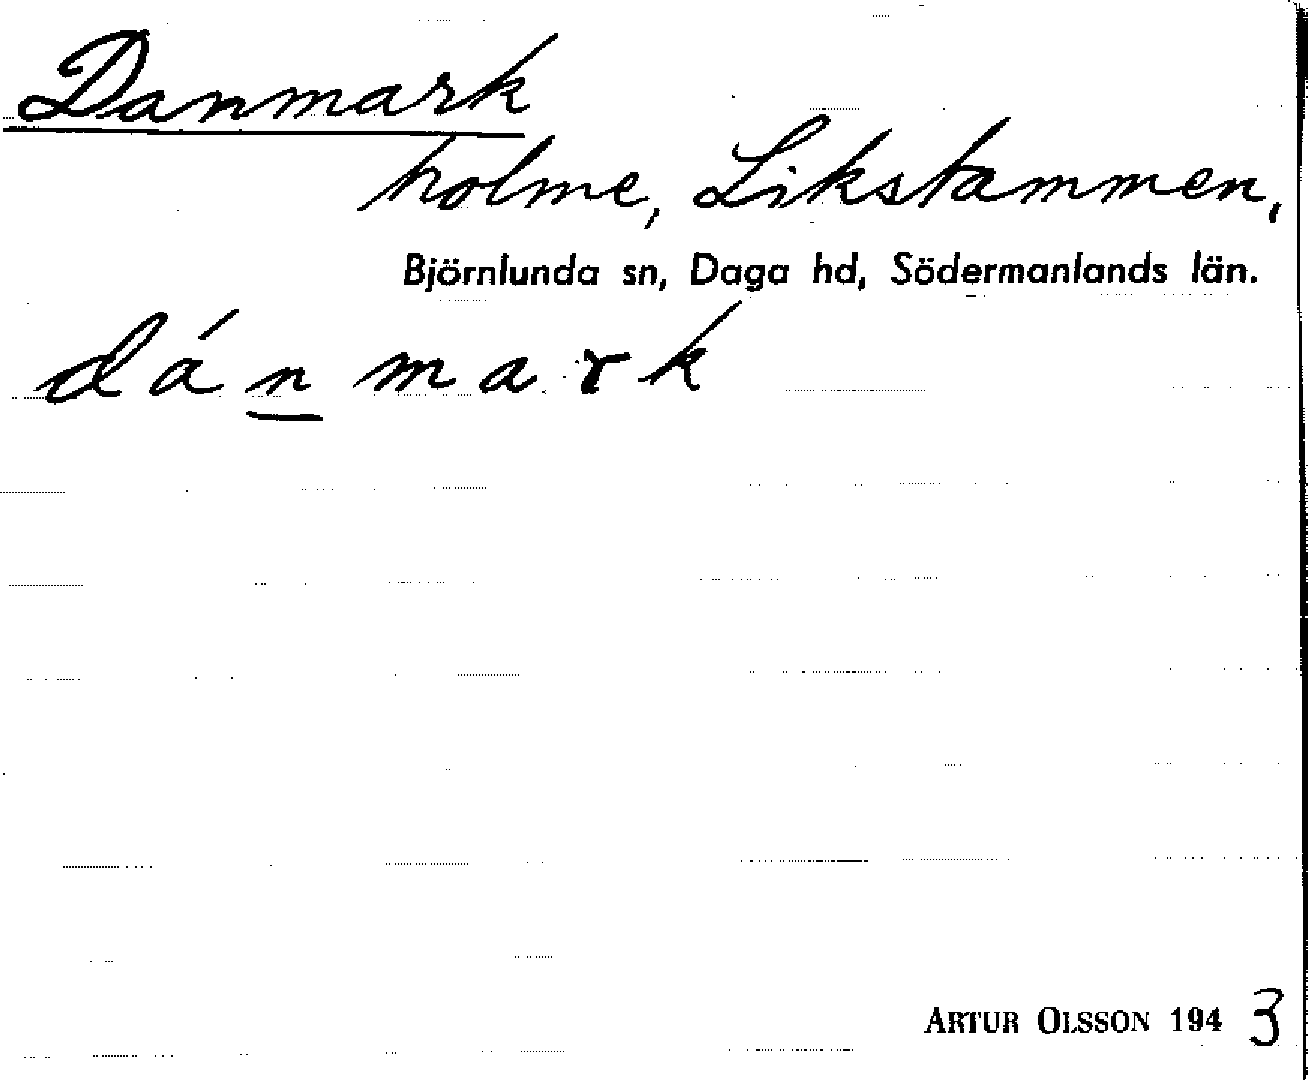 Danmark
holme, Likstammen,
Björnlunda sn, Daga hd, Södermanlands län.
dánmark
ARTUR OLSSON 1943